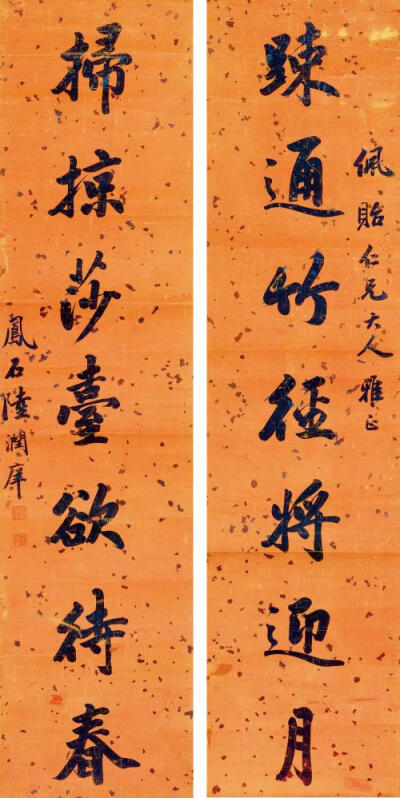 佩貽仁兄大人雅正
踈通竹徑將迎月
掃掠莎臺欲待春
鳳石陸潤庠